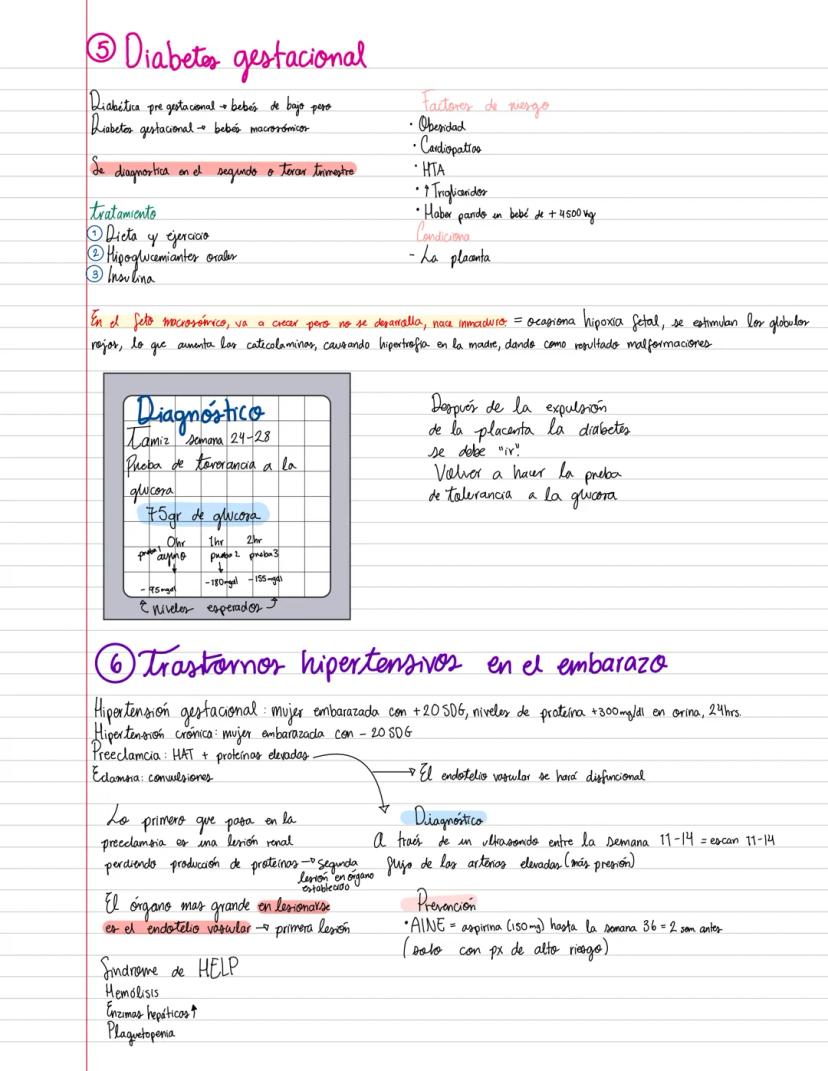 ⑤ Diabetes gestacional
Diabética pre gestacional → bebés de bajo peso
Diabetes gestacional → bebés macrosómicos
Se diagnostica en el segundo o tercer trimestre
tratamiento
① Dieta y ejercicio
② Hipoglucemiantes orales
③ Insulina
Factores de riesgo
· Obesidad
· Cardiopatías
· HTA
· ↑ Trigliceridos
· Haber parido un bebé de + 4500 kg
Condiciona
- La placenta
En el feto macrosómico, va a crecer pero no se desarrolla, nace inmaduro. = ocasiona hipoxia fetal, se estimulan los globulos
rojos, lo que aumenta las catecolaminas, causando hipertrofia en la madre, dando como resultado malformaciones
Diagnóstico
Tamiz semana 24-28
Prueba de toverancia a la
glucosa
75gr de glucosa
0hr 1hr 2hr
prueba 1 ayuno prueba 2 prueba 3
- 95mgdl -180mgdl -155mgdl
niveles esperados
Después de la expulsión
de la placenta la diabetes
se debe "ir".
Volver a hacer la prueba
de tolerancia a la glucosa
⑥ Trastornos hipertensivos en el embarazo
Hipertensión gestacional : mujer embarazada con +20 SDG, niveles de proteína +300mg/dl en orina, 24hrs.
Hipertensión crónica: mujer embarazada con - 20 SDG
Preeclamcia : HAT + proteínas elevadas
Eclamsia: convulsiones
→ El endotelio vascular se hará disfuncional
Lo primero que pasa en la
preeclamsia es una lesión renal
perdiendo producción de proteínas → Segunda
lesión en órgano
establecido
El órgano mas grande en lesionarse
es el endotelio vascular → primera lesión
Sindrome de HELP
Hemólisis
Enzimas hepáticas ↑
Plaquetopenia
Diagnóstico
A traés de un ultrasonido entre la semana 11-14 = escan 11-14
flujo de las arterias elevadas (más presión)
Prevención
· AINE = aspirina (150mg) hasta la semana 36 = 2 sem antes
(solo con px de alto riesgo)